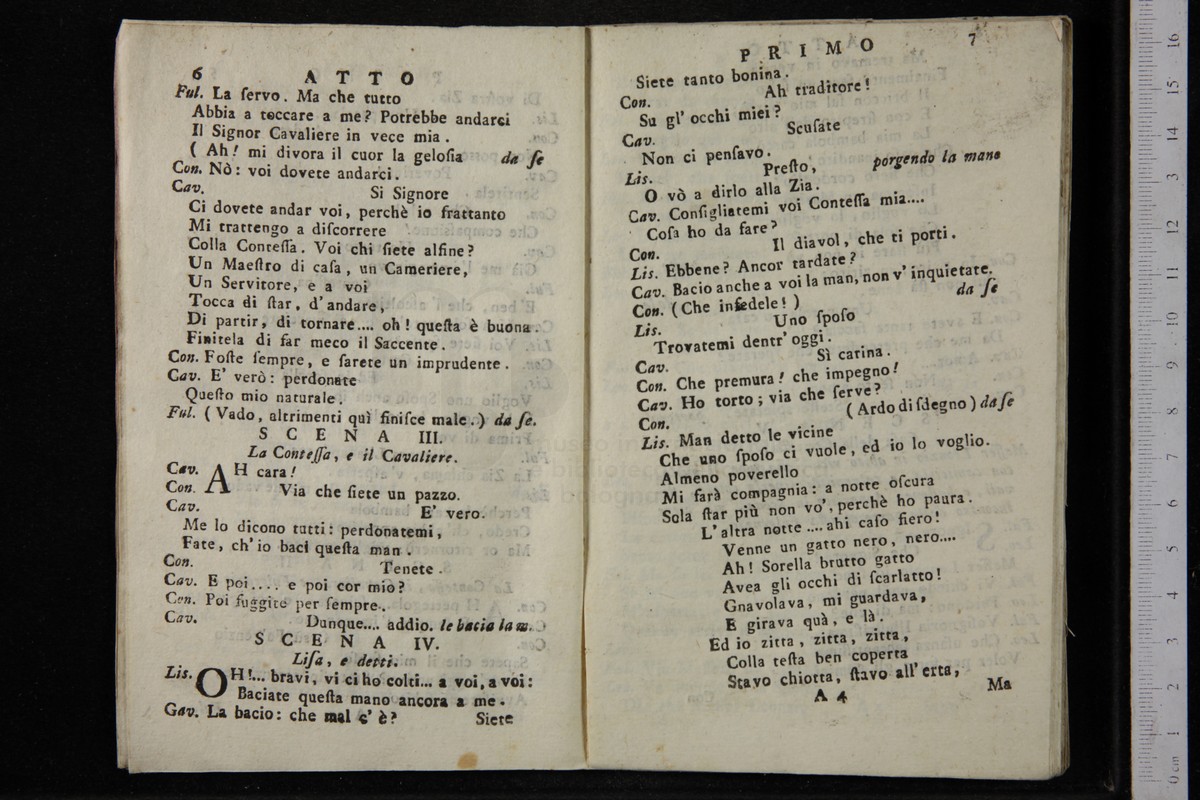 6 A T T O
Ful. La ſervo. Ma che tutto
Abbia a toccare a me? Potrebbe andarci
Il Signor Cavaliere in vece mia.
( Ah! mi divora il cuor la geloſia da ſe
Con. Nò: voi dovete andarci.
Cav. Si Signore
Ci dovete andar voi, perchè io frattanto
Mi trattengo a diſcorrere
Colla Conteſſa. Voi chi ſiete alfine?
Un Maeſtro di caſa, un Cameriere,
Un Servitore, e a voi
Tocca di ſtar, d'andare,
Di partir, di tornare.... oh! queſta è buona.
Finitela di far meco il Saccente.
Con. Foſte ſempre, e ſarete un imprudente.
Cav. E' verò: perdonate
Queſto mio naturale.
Ful. ( Vado, altrimenti quì finiſce male.) da ſe.
S C E N A III.
La Conteſſa, e il Cavaliere.
Cav. AH cara!
Con. Via che ſiete un pazzo.
Cav. E' vero.
Me lo dicono tutti: perdonatemi,
Fate, ch'io baci queſta man.
Con. Tenete.
Cav. E poi.... e poi cor mio?
Con. Poi fuggite per ſempre.
Cav. Dunque.... addio. le bacia la m.
S C E N A IV.
Liſa, e detti.
Lis. OH!... bravi, vi ci ho colti... a voi, a voi:
Baciate queſta mano ancora a me.
Cav. La bacio: che mal c'è? Siete
P R I M O 7
Siete tanto bonina.
Con. Ah traditore!
Su gl' occhi miei?
Cav. Scuſate
Non ci penſavo.
Lis. Preſto, porgendo la mano
O vò a dirlo alla Zia.
Cav. Conſigliatemi voi Conteſſa mia....
Coſa ho da fare?
Con. Il diavol, che ti porti.
Lis. Ebbene? Ancor tardate?
Cav. Bacio anche a voi la man, non v' inquietate.
Con. (Che infedele!) da ſe
Lis. Uno ſpoſo
Trovatemi dentr' oggi.
Cav. Sì carina.
Con. Che premura! che impegno!
Cav. Ho torto; via che ſerve?
Con. (Ardo di ſdegno) da ſe
Lis. Man detto le vicine
Che uno ſpoſo ci vuole, ed io lo voglio.
Almeno poverello
Mi farà compagnia: a notte oſcura
Sola ſtar più non vo', perchè ho paura.
L'altra notte.... ahi caſo fiero!
Venne un gatto nero, nero....
Ah! Sorella brutto gatto
Avea gli occhi di ſcarlatto!
Gnavolava, mi guardava,
E girava quà, e là.
Ed io zitta, zitta, zitta,
Colla teſta ben coperta
Stavo chiotta, ſtavo all'erta,
A 4 Ma
0 cm 1 2 3 4 5 6 7 8 9 10 11 12 13 14 15 16